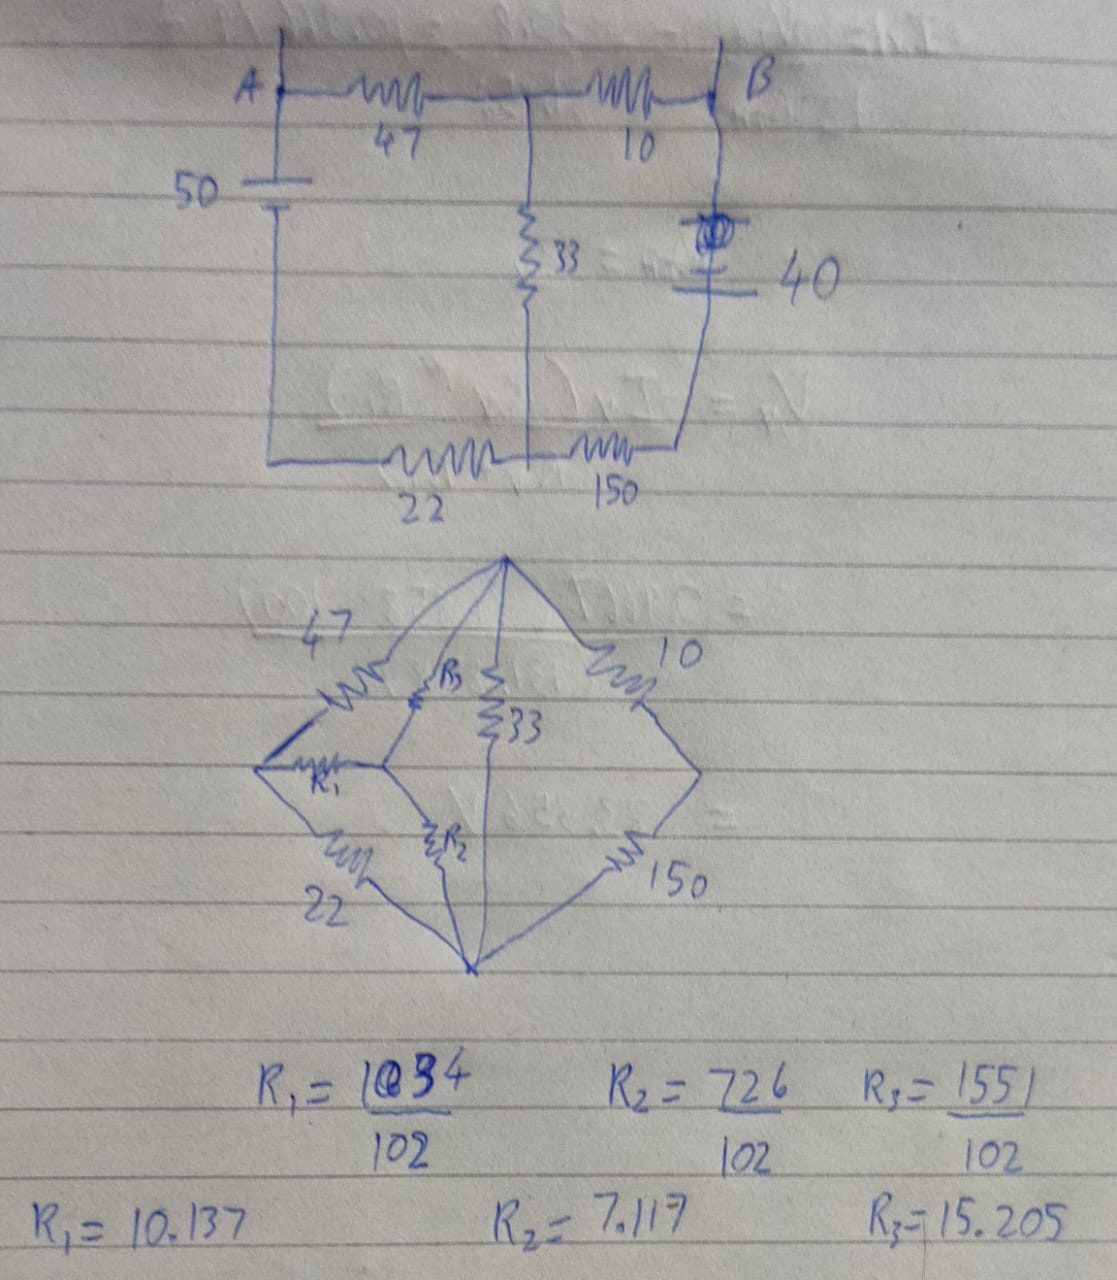 A B
47 10
50
33
40
22 150
47
10
R₃
33
R₁
R₂
22
150
R₁ = 1034/102 R₂ = 726/102 R₃ = 1551/102
R₁ = 10.137 R₂ = 7.117 R₃ = 15.205